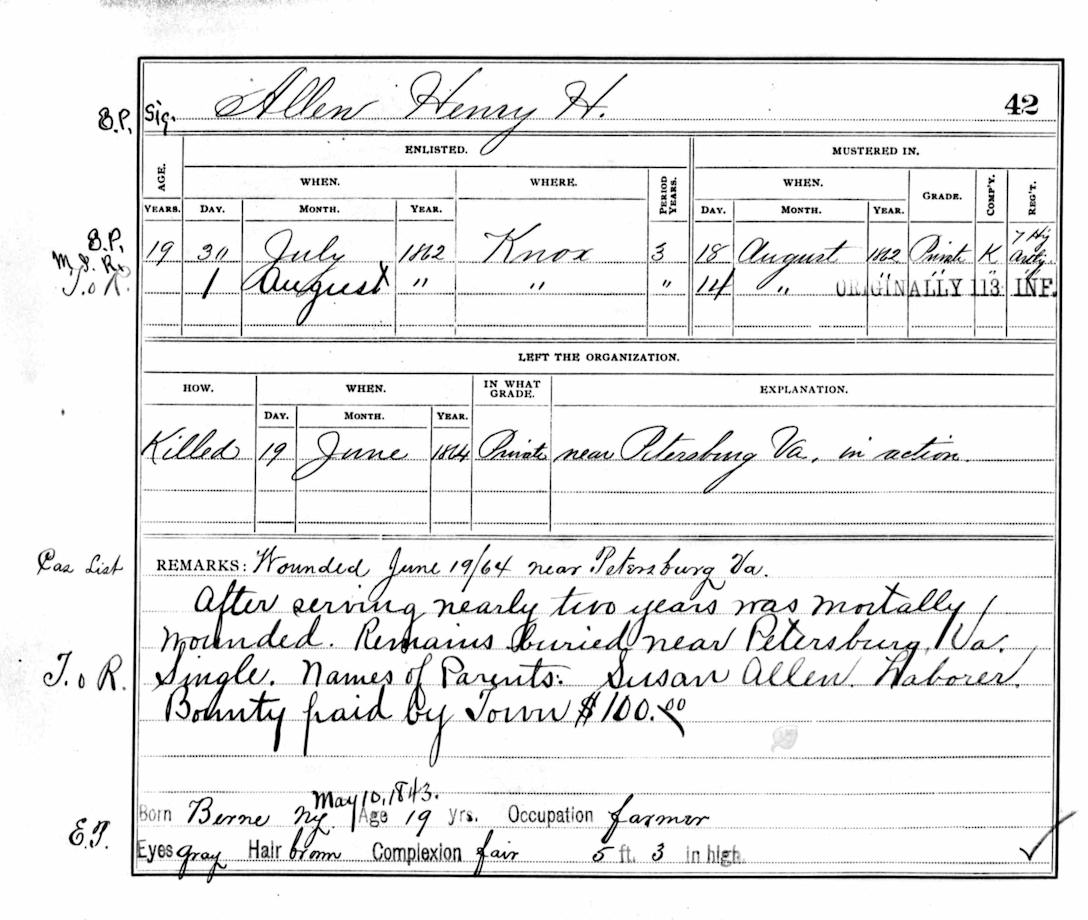 B.P. Sig. Allen Henry H. 42
ENLISTED. MUSTERED IN.
AGE. WHEN. WHERE. PERIOD YEARS. WHEN. GRADE. COMP'Y. REG'T.
YEARS. DAY. MONTH. YEAR. DAY. MONTH. YEAR.
7 Hy
B.P. 19 30 July 1862 Knox 3 18 August 1862 Private K Arty.
M.I.R.
T. o R. 1 August " " " 14 " " " " "
ORIGINALLY 113 INF.
LEFT THE ORGANIZATION.
HOW. WHEN. IN WHAT GRADE. EXPLANATION.
DAY. MONTH. YEAR.
Killed 19 June 1864 Private near Petersburg Va. in action.
Cas List REMARKS: Wounded June 19/64 near Petersburg Va.
After serving nearly two years was mortally
wounded. Remains buried near Petersburg, Va.
T. o R. Single. Names of Parents: Susan Allen. Laborer.
Bounty paid by Town $100.00
May 10, 1843.
Born Berne Ny. Age 19 yrs. Occupation farmer
E.P. Eyes gray Hair brown Complexion fair 5 ft. 3 in high.